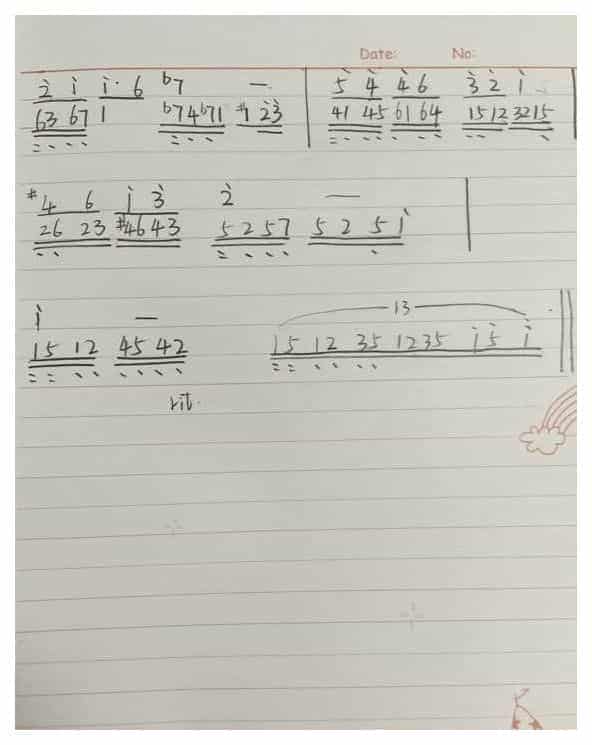 Date: No:
2̇ 1̇ 1̇· 6 ♭7 — | 5̇ 4̇ 4̇ 6 3̇ 2̇ 1̇ |
63 67 1 ♭74♭71 #1̇ 2̇3̇ 41 45 61 64 1512 3215
#4 6 1̇ 3̇ 2̇ — |
26 23 #4643 5257 5 2 5 1̇
1̇ — 13
15 12 45 42 15 12 35 1235 1̇5̇ 1̇ ||
rit.